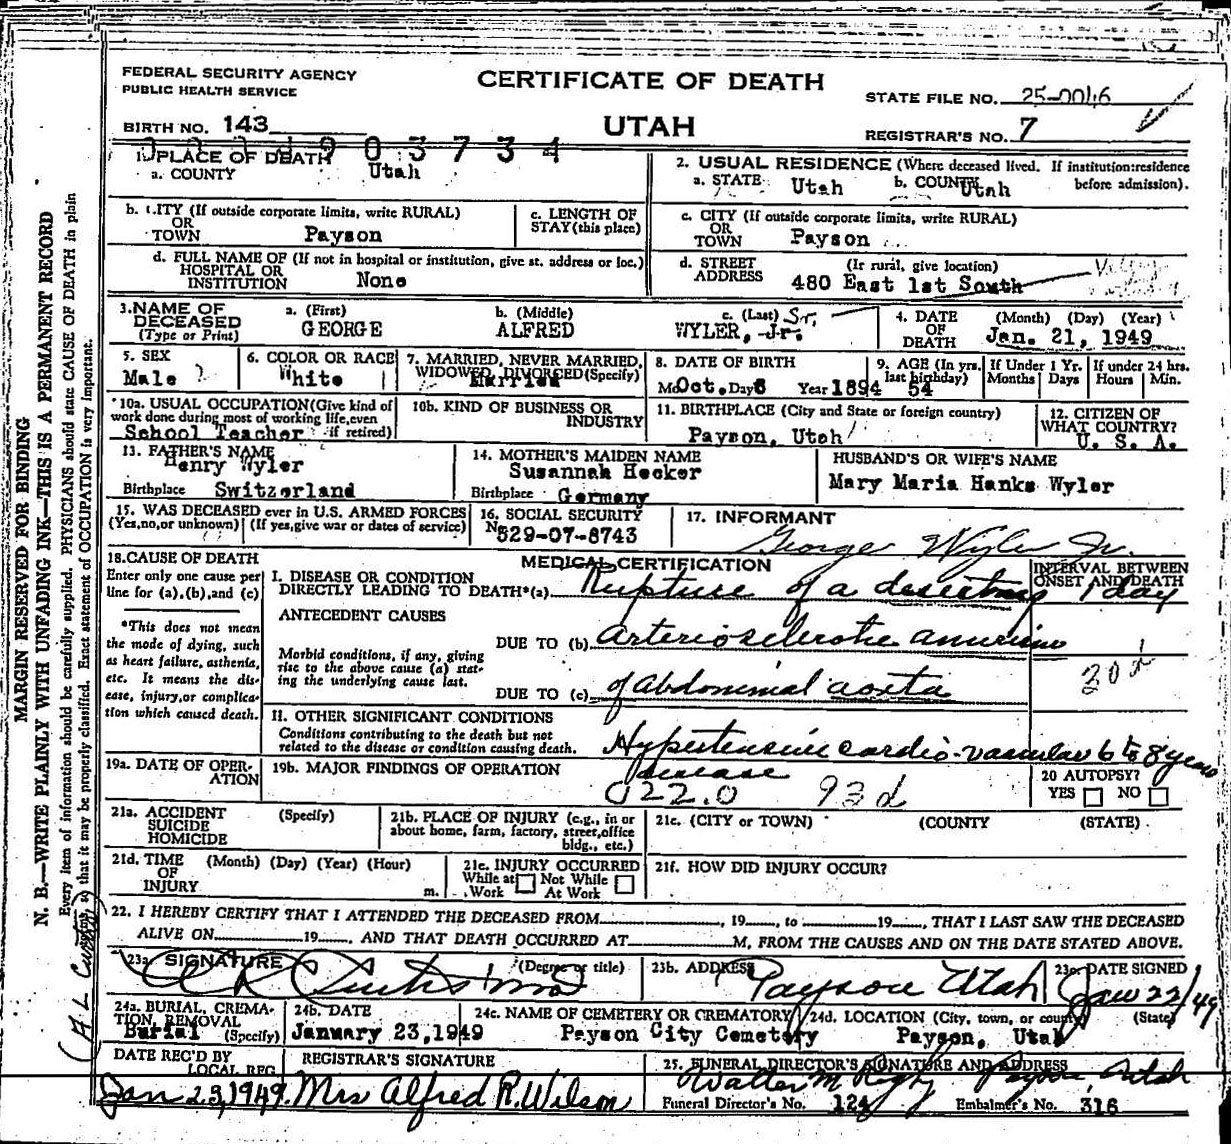 FEDERAL SECURITY AGENCY
PUBLIC HEALTH SERVICE
CERTIFICATE OF DEATH
STATE FILE NO. 25-0046
BIRTH NO. 143
UTAH
REGISTRAR'S NO. 7
903734
1. PLACE OF DEATH
a. COUNTY Utah
2. USUAL RESIDENCE (Where deceased lived. If institution: residence before admission).
a. STATE Utah b. COUNTY Utah
b. CITY (If outside corporate limits, write RURAL)
OR
TOWN Payson
c. LENGTH OF
STAY (this place)
c. CITY (If outside corporate limits, write RURAL)
OR
TOWN Payson
d. FULL NAME OF (If not in hospital or institution, give st. address or loc.)
HOSPITAL OR
INSTITUTION None
d. STREET (If rural, give location)
ADDRESS 480 East 1st South
3. NAME OF
DECEASED
(Type or Print)
a. (First) GEORGE
b. (Middle) ALFRED
c. (Last) WYLER, Jr. Sr.
4. DATE
OF
DEATH
(Month) (Day) (Year)
Jan. 21, 1949
5. SEX
Male
6. COLOR OR RACE
White
7. MARRIED, NEVER MARRIED,
WIDOWED, DIVORCED (Specify)
Married
8. DATE OF BIRTH
Mo. Oct. Day 6 Year 1894
9. AGE (In yrs. last birthday) 54
If Under 1 Yr.
Months Days
If under 24 hrs.
Hours Min.
10a. USUAL OCCUPATION (Give kind of
work done during most of working life, even
if retired)
School Teacher
10b. KIND OF BUSINESS OR
INDUSTRY
11. BIRTHPLACE (City and State or foreign country)
Payson, Utah
12. CITIZEN OF
WHAT COUNTRY?
U. S. A.
13. FATHER'S NAME
Henry Wyler
Birthplace Switzerland
14. MOTHER'S MAIDEN NAME
Susannah Hecker
Birthplace Germany
HUSBAND'S OR WIFE'S NAME
Mary Maria Hanks Wyler
15. WAS DECEASED ever in U.S. ARMED FORCES
(Yes, no, or unknown) (If yes, give war or dates of service)
16. SOCIAL SECURITY
No. 529-07-8743
17. INFORMANT
George Wyler Jr.
18. CAUSE OF DEATH
Enter only one cause per
line for (a), (b), and (c)
*This does not mean
the mode of dying, such
as heart failure, asthenia,
etc. It means the dis-
ease, injury, or complica-
tion which caused death.
MEDICAL CERTIFICATION
INTERVAL BETWEEN
ONSET AND DEATH
I. DISEASE OR CONDITION
DIRECTLY LEADING TO DEATH*(a) Rupture of a desecting 1 day
ANTECEDENT CAUSES
DUE TO (b) arteriosclerotic
Morbid conditions, if any, giving
rise to the above cause (a) stat-
ing the underlying cause last.
DUE TO (c) of abdominal aorta
II. OTHER SIGNIFICANT CONDITIONS
Conditions contributing to the death but not
related to the disease or condition causing death.
Hypertensive cardio-vascular 6 to 8 years
disease
19a. DATE OF OPER-
ATION
19b. MAJOR FINDINGS OF OPERATION
022.0 93d
20 AUTOPSY?
YES NO
21a. ACCIDENT
SUICIDE
HOMICIDE
(Specify)
21b. PLACE OF INJURY (e.g., in or
about home, farm, factory, street, office
bldg., etc.)
21c. (CITY or TOWN) (COUNTY) (STATE)
21d. TIME (Month) (Day) (Year) (Hour)
OF
INJURY m.
21e. INJURY OCCURRED
While at Work Not While At Work
21f. HOW DID INJURY OCCUR?
22. I HEREBY CERTIFY THAT I ATTENDED THE DECEASED FROM , 19 , to 19 , THAT I LAST SAW THE DECEASED
ALIVE ON 19 , AND THAT DEATH OCCURRED AT M, FROM THE CAUSES AND ON THE DATE STATED ABOVE.
23a. SIGNATURE (Degree or title)
23b. ADDRESS
Payson Utah
23c. DATE SIGNED
Jan 22/49
24a. BURIAL, CREMA-
TION, REMOVAL
Burial (Specify)
24b. DATE
January 23, 1949
24c. NAME OF CEMETERY OR CREMATORY
Payson City Cemetery
24d. LOCATION (City, town, or county) (State)
Payson, Utah
DATE REC'D BY
LOCAL REG.
Jan 23, 1949.
REGISTRAR'S SIGNATURE
Mrs Alfred R. Wilson
25. FUNERAL DIRECTOR'S SIGNATURE AND ADDRESS
Walter M Payson, Utah
Funeral Director's No. 124 Embalmer's No. 316
MARGIN RESERVED FOR BINDING
N. B.—WRITE PLAINLY WITH UNFADING INK—THIS IS A PERMANENT RECORD
Every item of information should be carefully supplied. PHYSICIANS should state CAUSE OF DEATH in plain
so that it may be properly classified. Exact statement of OCCUPATION is very important.